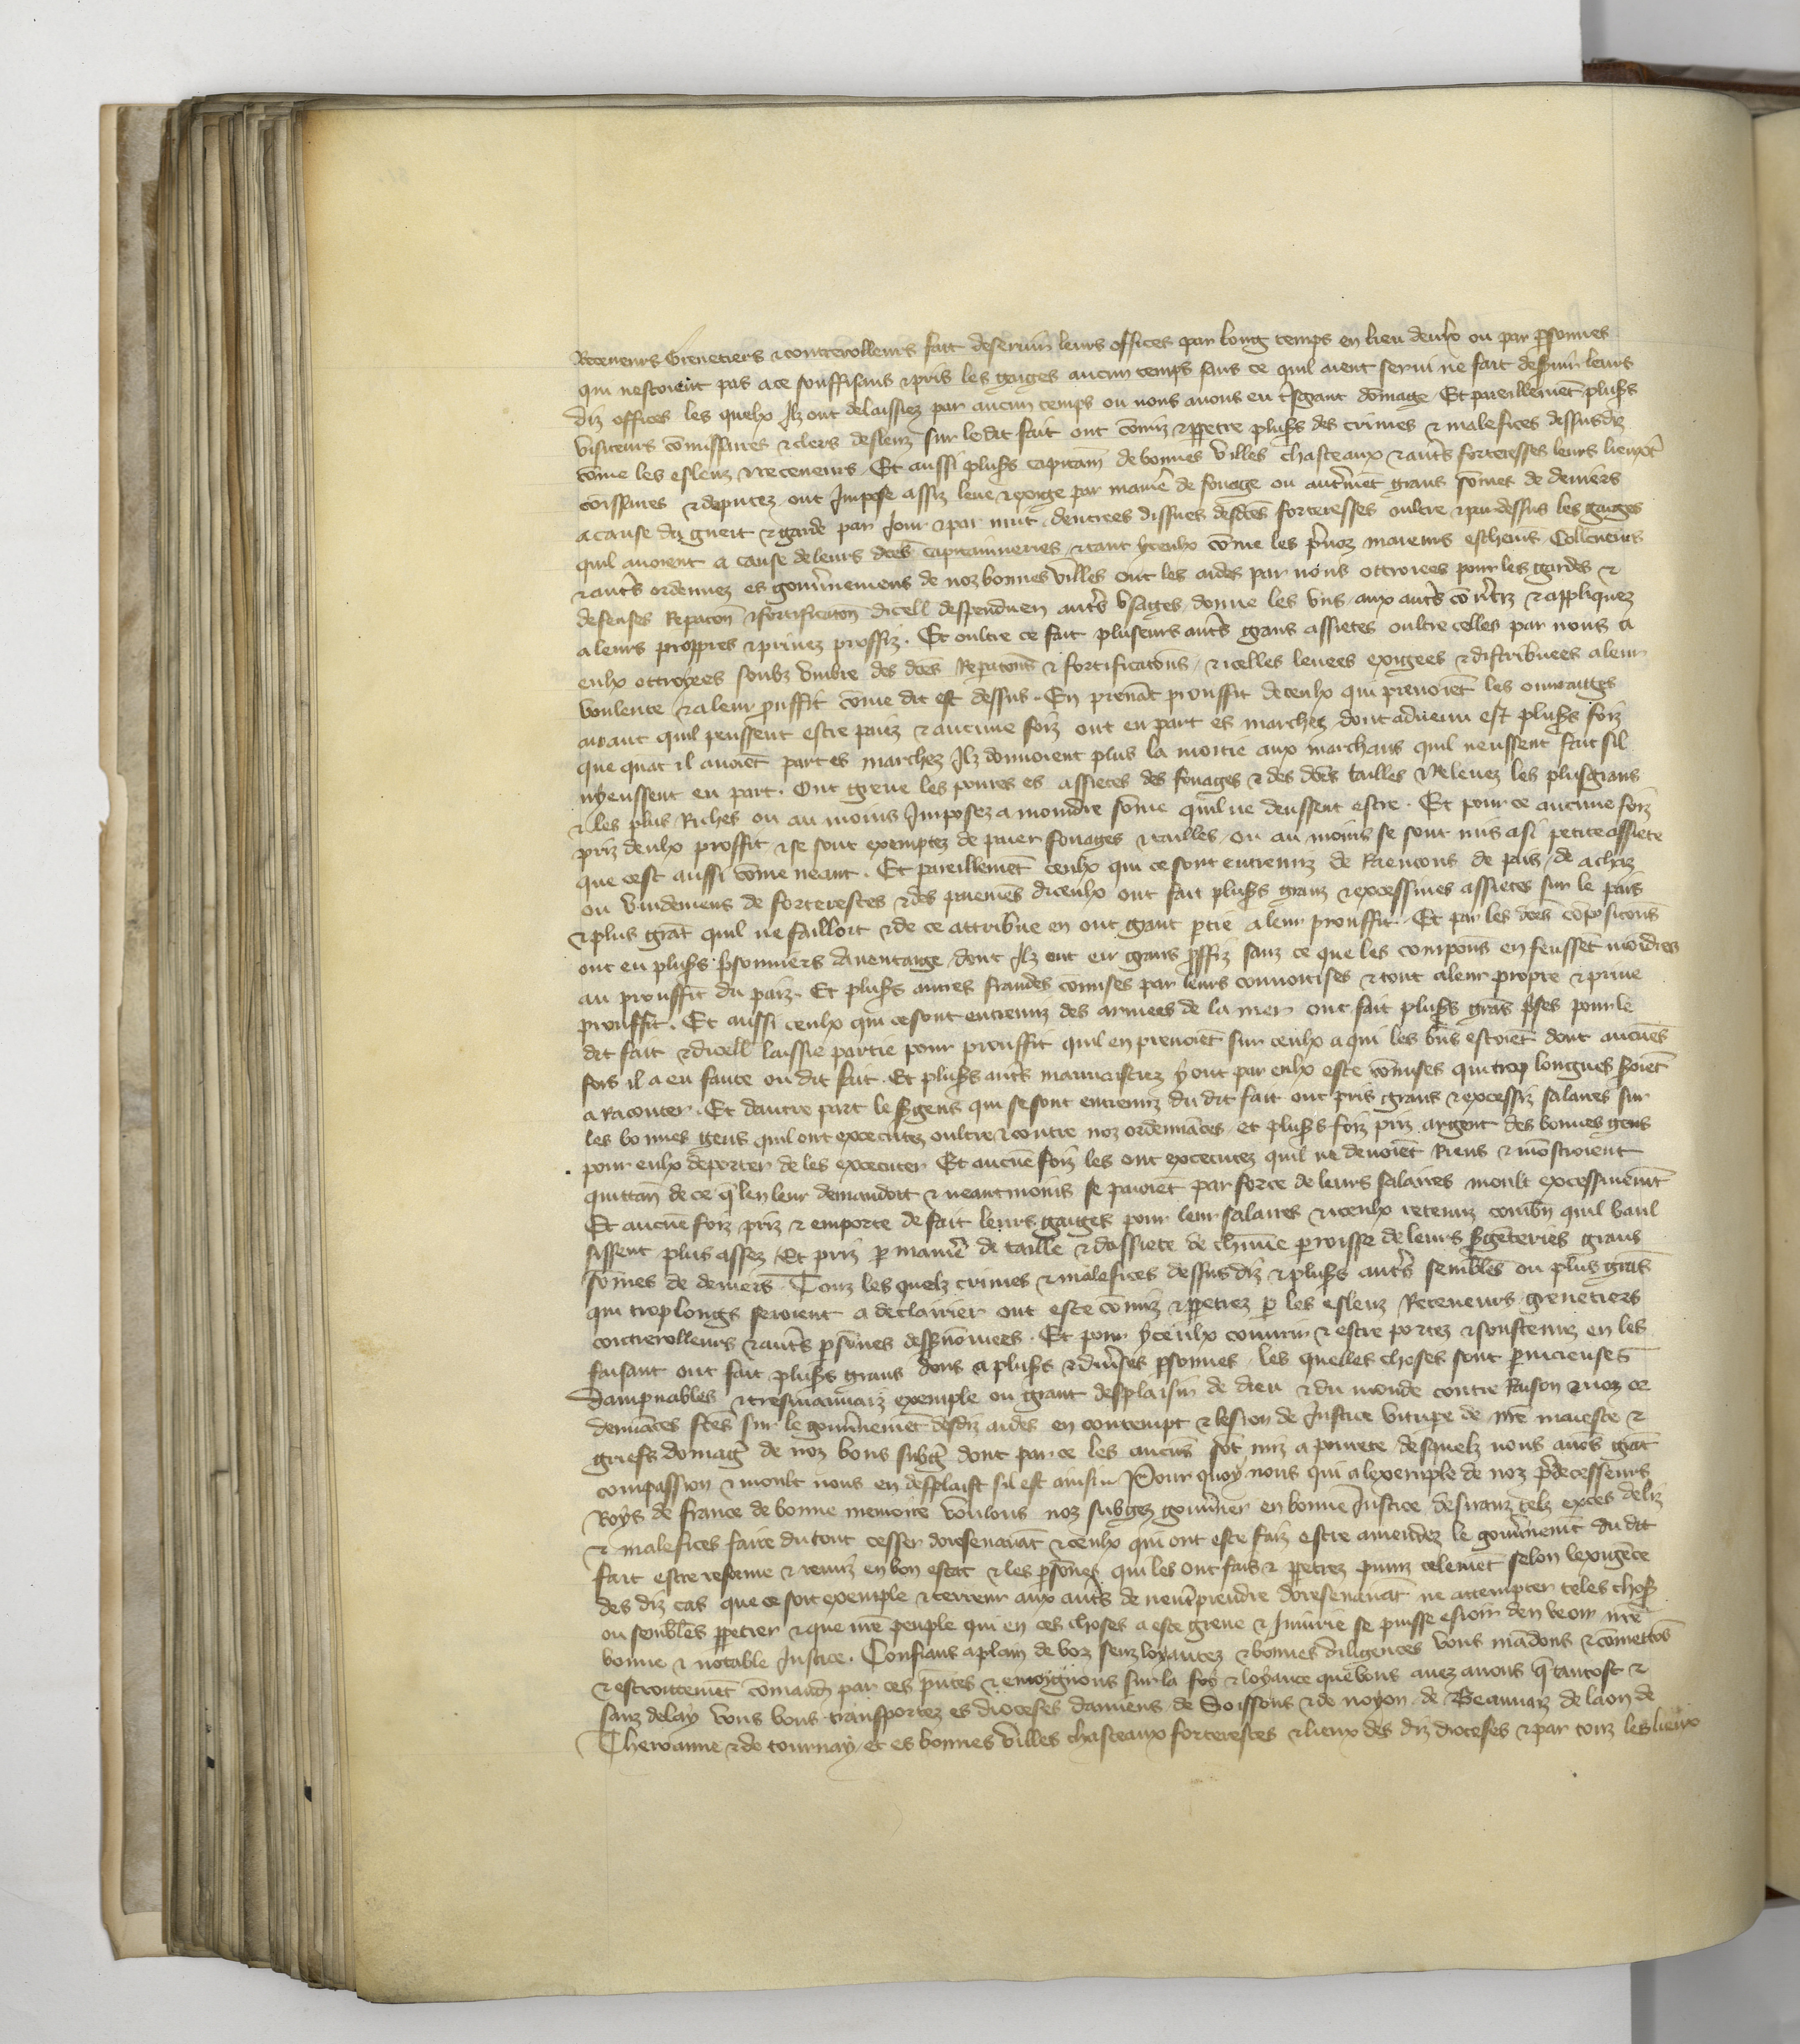 Receveurs Grenetiers & contrerolleurs fait deservir leurs offices par long temps en lieu deulx ou par psonnes
qui nestoient pas a ce souffisans & pris les gaiges aucun temps sans ce quil aient servi ne fait desvir leurs
diz offices les quelx Ilz ont delaissiez par aucun temps ou nous avons eu tsgrant domage Et pareillemet plusrs
visiteurs comissaires & clers desleuz sur ledit fait ont comiz & ppetre plusrs des crimes & malefices dessusdiz
come les esleuz & receveurs Et aussi plusrs capitain de bonnes villes chasteaux & autrs forteresses leurs lieux
comissaires & deputez ont Impose assiz leve & exige par manie de fouage ou autremet grans somes de deniers
a cause du gueit & garde par Jour & par nuit dentrees dissues desdces forteresses oultre & pardessus les gaiges
quil avoient a cause de leurs dces capitaineries & tant yceulx come les pvoz maieurs eschevis Collecteurs
& autrs ordennez es govnemens de noz bonnes villes ont les aides par nous ottroiees pour les gardes &
defenses Repacon & fortificaton dicell despendu en autrs usages donne les uns aux autrs & appliquez
a leurs proppres & privez proffiz. Et oultre ce fait pluseurs autrs grans assietes oultre celles par nous a
eulx ottroyees soubz umbre des dces Repacons & fortificatons & icelles levees exigees & distribuees a leur
voulente & a leur pruffit come dit est dessus. En prenat prouffit de ceulx qui prenoiet les ouvraiges
avant quil peussent estre paiez & aucune foiz ont eu part es marchez dont advenu est plusrs foiz
que quat il avoiet part es marchez Ilz donnoient plus la moitie aux marchans quil neussent fait sil
nyeussent eu part. Ont greve les povres es assietes des fouages & des dces tailles & Relevez les plusgrans
& les plus Riches ou au moins Imposez a moindre some quil ne deussent estre. Et pour ce aucune foiz
priz deulx proffit & se sont exemptez de paier fouages & tailles ou au moins se sont mis a si petite assiete
que cest aussi come neant. Et pareillemet ceulx qui ce sont entremiz de Raencons de pais de achaz
ou vuidemens de forteresces & des paiemes diceulx ont fait plusrs granz & excessives assietes sur le pais
& plus grat quil ne failloit & de ce attribue en ont gant ptie a leur prouffit. Et par les dces composicons
ont eu plusrs psonniers davantaige dont Ilz ont eu grans pffiz sanz ce que les compons en feusset moidres
au prouffit du paiz. Et plusrs autres fraudes comises par leurs convoitises & tout a leur propre & prive
prouffit. Et aussi ceulx qui ce sont entremiz des armees de la mer ont fait plusrs gras pses pour le
dit fait & dicell laissie partie pour prouffit quil en prenoiet sur ceulx a qui les bns estoiet dont aucues
fois il a eu faute ou dit fait. Et plusrs autrs mauvaistiez y ont par eulx este comises qui trop longues soiet
a Raconter. Et dautre part le sgens qui se sont entremiz du dit fait ont pris grans & excessiz salaires sur
les bonnes gens quil ont executez oultre & contre noz ordennaces et plusrs foiz priz argent des bonnes gens
pour eulx deporter de les executer Et aucue foiz les ont executez quil ne devoiet Riens & mostroient
quittan de ce q len leur demandoit & neantmoins se paioiet par force de leurs salaires moult excessivemet
Et aucue foiz priz & emporte de fait leurs gaiges pour leur salaires & iceulx retenuz combn quil vaul
sissent plus assez Et priz p manie de taille & dassiete de chune proisse de leurs sgeteries grans
somes de deniers. Touz les quelz crimes & malefices dessus diz & plusrs autrs sembles ou plus gras
qui trop longs seroient a declairier ont este comiz & ppetrez p les esleuz Receveurs grenetiers
contrerolleurs & autrs psones dessnomees. Et pour yceulx couvrir & estre portez & soustenuz en les
faisant ont fait plusrs grans dons a plusrs & divses psonnes les quelles choses sont pnicieuses
dampnables & tresmauvaiz exemple ou grant desplaisir de dieu & du monde contre Raison & noz or
dennaces fces sur le govnemet desdiz aides en contempt & lesion de Justice vitupe de nre maieste &
griefs domage de noz bons subgez dont par ce les aucus sot miz a povrete desquelz nous avos grat
compassion & moult nous en desplaist sil est ainsi Pour quoy nous qui a lexemple de noz pdecesseurs
Roys de france de bonne memoire voulons noz subgez govner en bonne Justice desiranz telz exces deliz
& malefices faire du tout cesser doresenavat & ceulx qui ont este faiz estre amendez le govnemet du dit
fait estre reforme & remiz en bon estat & les psones qui les ont fais & ppetrez puniz telemet selon lexigece
des diz cas que ce soit exemple & terreur aux autrs de nentprendre doresenavat ne attempter teles choses
ou sembles ppetrer & que nre peuple qui en ces choses a este greve & Iniurie se puisse esioir den veoir nre
bonne & notable Justice. Confians aplain de voz senz loyautez & bonnes diligences vous madons & comettos
& estroittemet comand par ces pntes & enioignons sur la foy & loyaute que vous avez a nous q tantost &
sanz delay vous vous transportez es dioceses damiens de Soissons & de noyon de Beauvaiz de laon de
Therouanne & de tournay et es bonnes villes chasteaux forteresces & lieux des diz dioceses & par touz les lieux